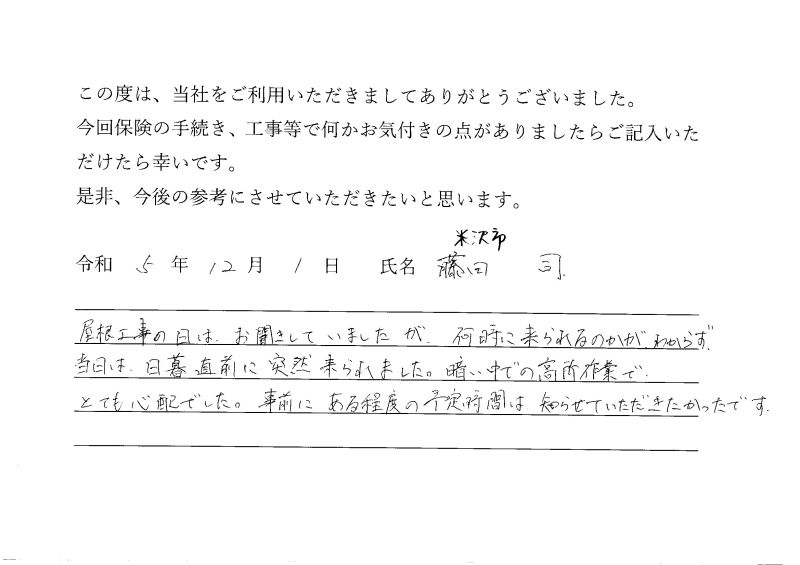 この度は、当社をご利用いただきましてありがとうございました。
今回保険の手続き、工事等で何かお気付きの点がありましたらご記入いた
だけたら幸いです。
是非、今後の参考にさせていただきたいと思います。
米沢市
令和 5 年 12 月 1 日 氏名 藤田 司
屋根工事の日は、お聞きしていましたが、何時に来られるのかが、わからず、
当日は、日暮直前に突然来られました。暗い中での高所作業で、
とても心配でした。事前にある程度の予定時間は知らせていただきたかったです。